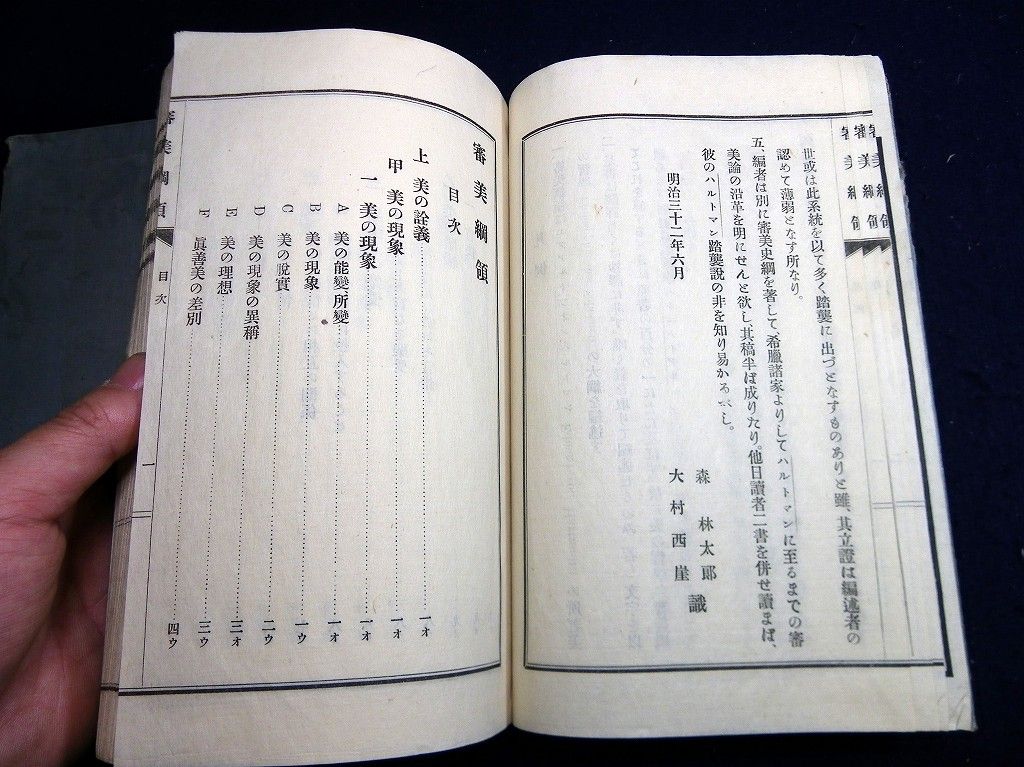 世或は此系統を以て多く踏襲に出づとなすものありと雖、其立證は編述者の
認めて薄弱となす所なり。
五、編者は別に審美史綱を著して、希臘諸家よりしてハルトマンに至るまでの審
美論の沿革を明にせんと欲し、其稿半ば成りたり。他日讀者二書を併せ讀まば、
彼のハルトマン踏襲說の非を知り易かるべし。
明治三十二年六月
森林太郎
大村西崖 識
審美綱領
審美綱領
目次
上 美の詮義 一オ
甲 美の現象 一オ
一 美の現象 一オ
A 美の能變、所變 一オ
B 美の現象 一ウ
C 美の脫實 二ウ
D 美の現象の異稱 三オ
E 美の理想 三ウ
F 眞善美の差別 四ウ
審美綱領 目次 一